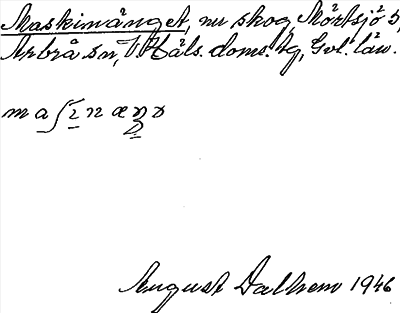 Maskinänget, nu skog, Mörtsjö 5,
Arbrå sn, V. Häls. doms. tg, Gvl. län.
maʃinæŋə
August Dalhem 1946